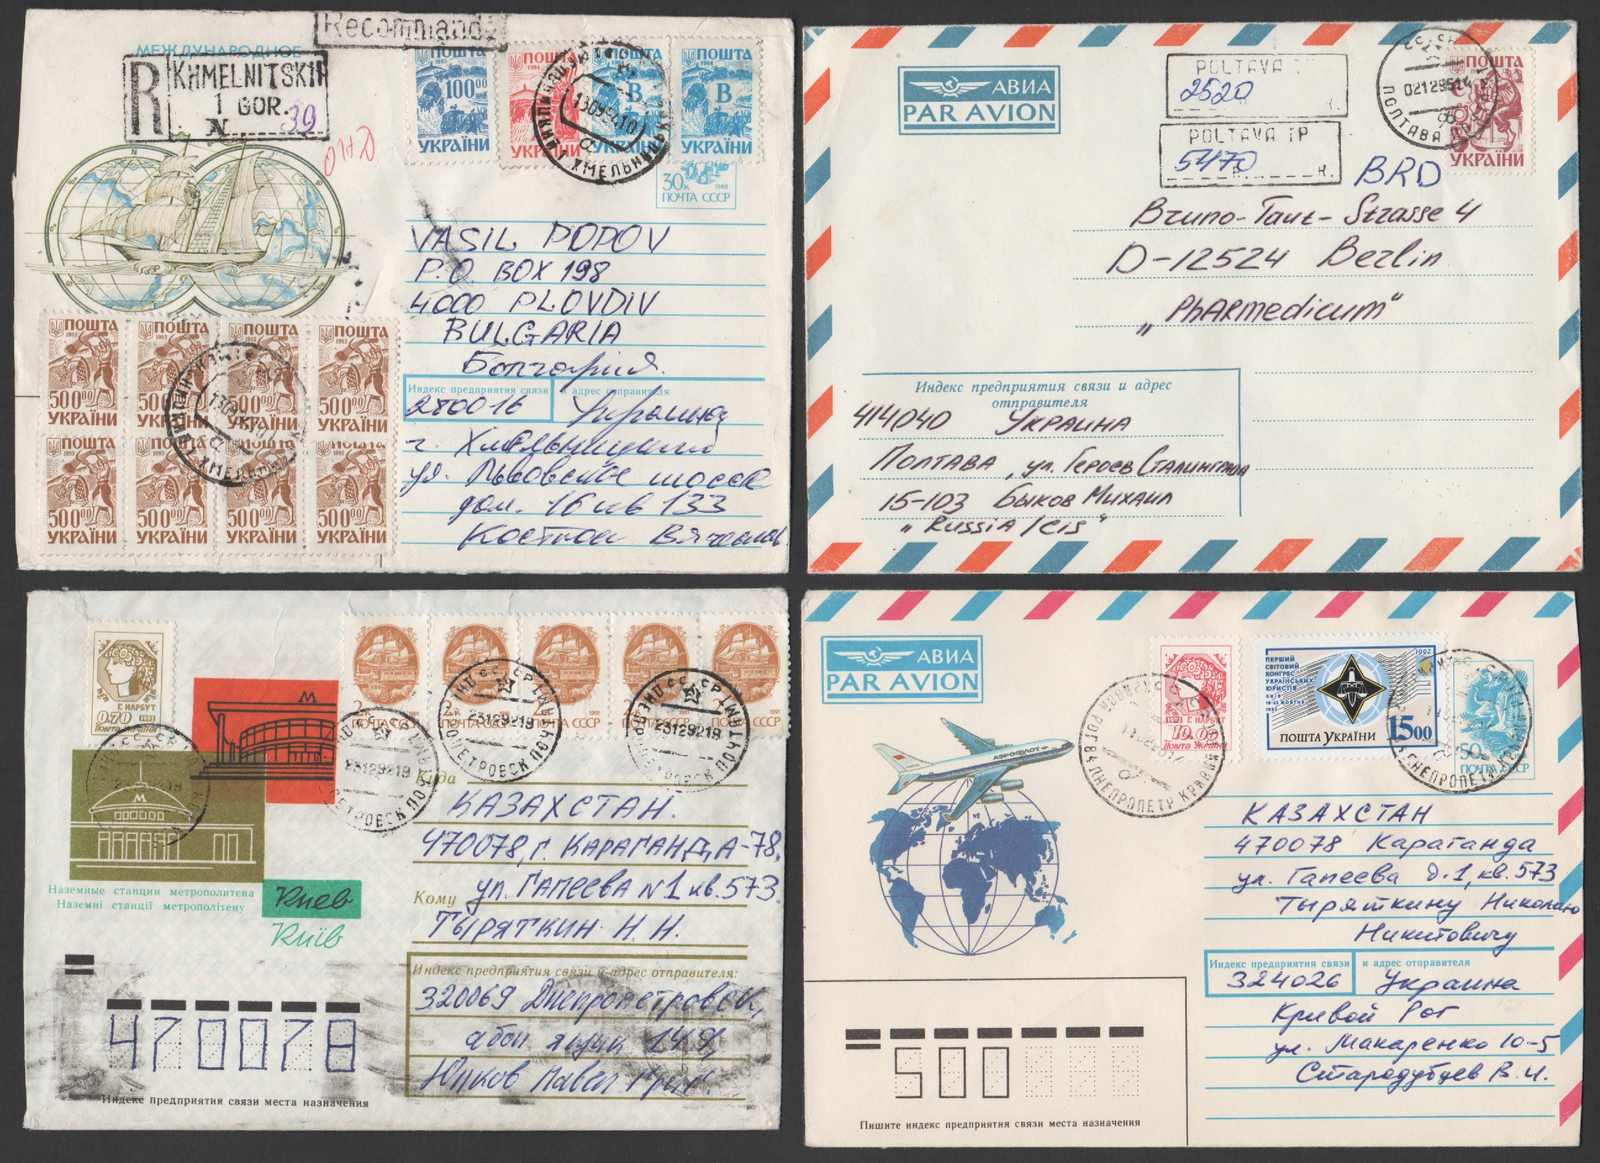 Recommandé
МЕЖДУНАРОДНОЕ
R
KHMELNITSKIJ
1 GOR.
N 39
0170
ПОШТА
1993
100.00
УКРАЇНИ
ПОШТА
УКРАЇНИ
ПОШТА
В
УКРАЇНИ
ПОШТА
В
УКРАЇНИ
30к
1988
ПОЧТА СССР
VASIL POPOV
P.O. BOX 198
4000 PLOVDIV
BULGARIA
Болгария.
Индекс предприятия связи и адрес отправителя
280016 Украина
г. Хмельницкий
ул. Львовское шоссе
дом. 16 кв 133
ПОШТА
1993
500.00
УКРАЇНИ
ПОШТА
1993
500.00
УКРАЇНИ
ПОШТА
1993
500.00
УКРАЇНИ
ПОШТА
1993
500.00
УКРАЇНИ
ПОШТА
1993
500.00
УКРАЇНИ
ПОШТА
1993
500.00
УКРАЇНИ
ПОШТА
1993
500.00
УКРАЇНИ
ПОШТА
1993
500.00
УКРАЇНИ
АВИА
PAR AVION
POLTAVA
2520
R.
POLTAVA
5470
R.
ПОЛТАВА
ПОШТА
УКРАЇНИ
BRD
Bruno-Taut-Strasse 4
D-12524 Berlin
„Pharmedicum"
Индекс предприятия связи и адрес
отправителя
414040 Украина
Полтава, ул. Героев Сталинграда
15-103 Быков Михаил
„Russia/cis"
Г. НАРБУТ
0-70
Пошта України
М
М
ПОЧТА СССР
ПОЧТА СССР
ПОЧТА СССР
ПОЧТА СССР
ПОЧТА СССР
23129219
23129219
23129219
Куда
КАЗАХСТАН.
470078, г. КАРАГАНДА-78,
Кому ул. ГАПЕЕВА N1 кв. 573
ТЫРЯТКИН Н. Н.
Наземные станции метрополитена
Наземні станції метрополітену
Киев
Київ
Индекс предприятия связи и адрес отправителя:
320069 Днепропетровск,
470078
Индекс предприятия связи места назначения
АВИА
PAR AVION
АЭРОФЛОТ
Г. НАРБУТ
10.00
Пошта України
ПЕРШИЙ
СВІТОВИЙ
КОНГРЕС
УКРАЇНСЬКИХ
ЮРИСТІВ
1992
ПОШТА УКРАЇНИ
15 00
50к
ПОЧТА СССР
КАЗАХСТАН
470078 Караганда
ул. Гапеева д. 1, кв. 573
Тыряткину Николаю
Никитовичу
Индекс предприятия связи и адрес отправителя
324026 Украина
Кривой Рог
ул. Макаренко 10-5
Стародубцев В. И.
500
Пишите индекс предприятия связи места назначения